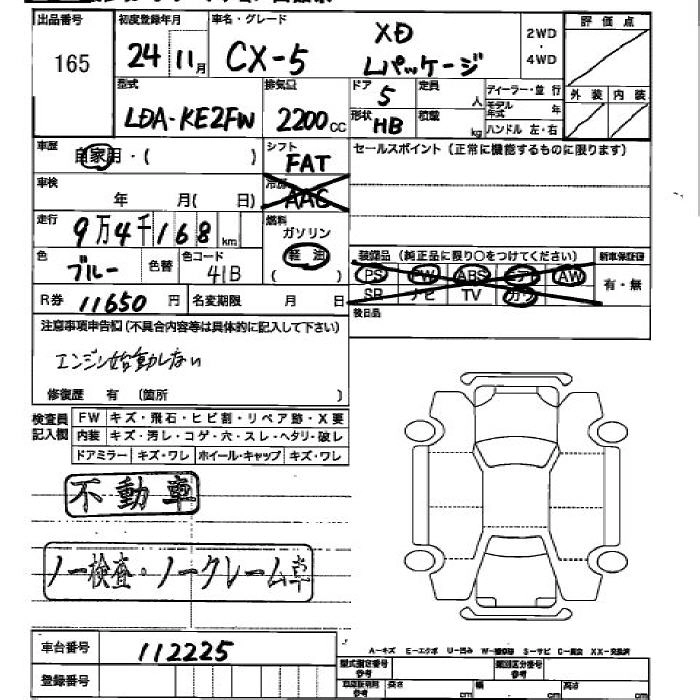 出品番号 初度登録年月 車名・グレード 評価点
165 24年11月 CX-5 XD Lパッケージ 2WD・4WD
型式 排気量 ドア 定員 ディーラー・並行 外装 内装
LDA-KE2FW 2200cc 5 人 モデル年式 年
形状 HB 積載 kg ハンドル 左・右
車歴 自家用・( ) シフト FAT セールスポイント(正常に機能するものに限ります)
車検 年 月( 日) 冷房 AAC
走行 9万4千168km 燃料 ガソリン
色 ブルー 色替 色コード 41B 軽油 ( ) 装備品(純正品に限り〇をつけてください) 新車保証書
PS PW ABS エア AW 有・無
R券 11650円 名変期限 月 日 SR ナビ TV カワ
後日品
注意事項申告欄(不具合内容等は具体的に記入して下さい)
エンジン始動しない
修復歴 有 (箇所 )
検査員記入欄 FW キズ・飛石・ヒビ割・リペア跡・X要
内装 キズ・汚レ・コゲ・穴・スレ・ヘタリ・破レ
ドアミラー キズ・ワレ ホイール・キャップ キズ・ワレ
不動車
ノー検査・ノークレーム車
車台番号 112225
A-キズ E-エクボ U-凹み W-補修跡 S-サビ C-腐食 XX-交換済
登録番号 型式指定番号 類別区分番号
参考 参考
長さ cm 幅 cm 高さ cm